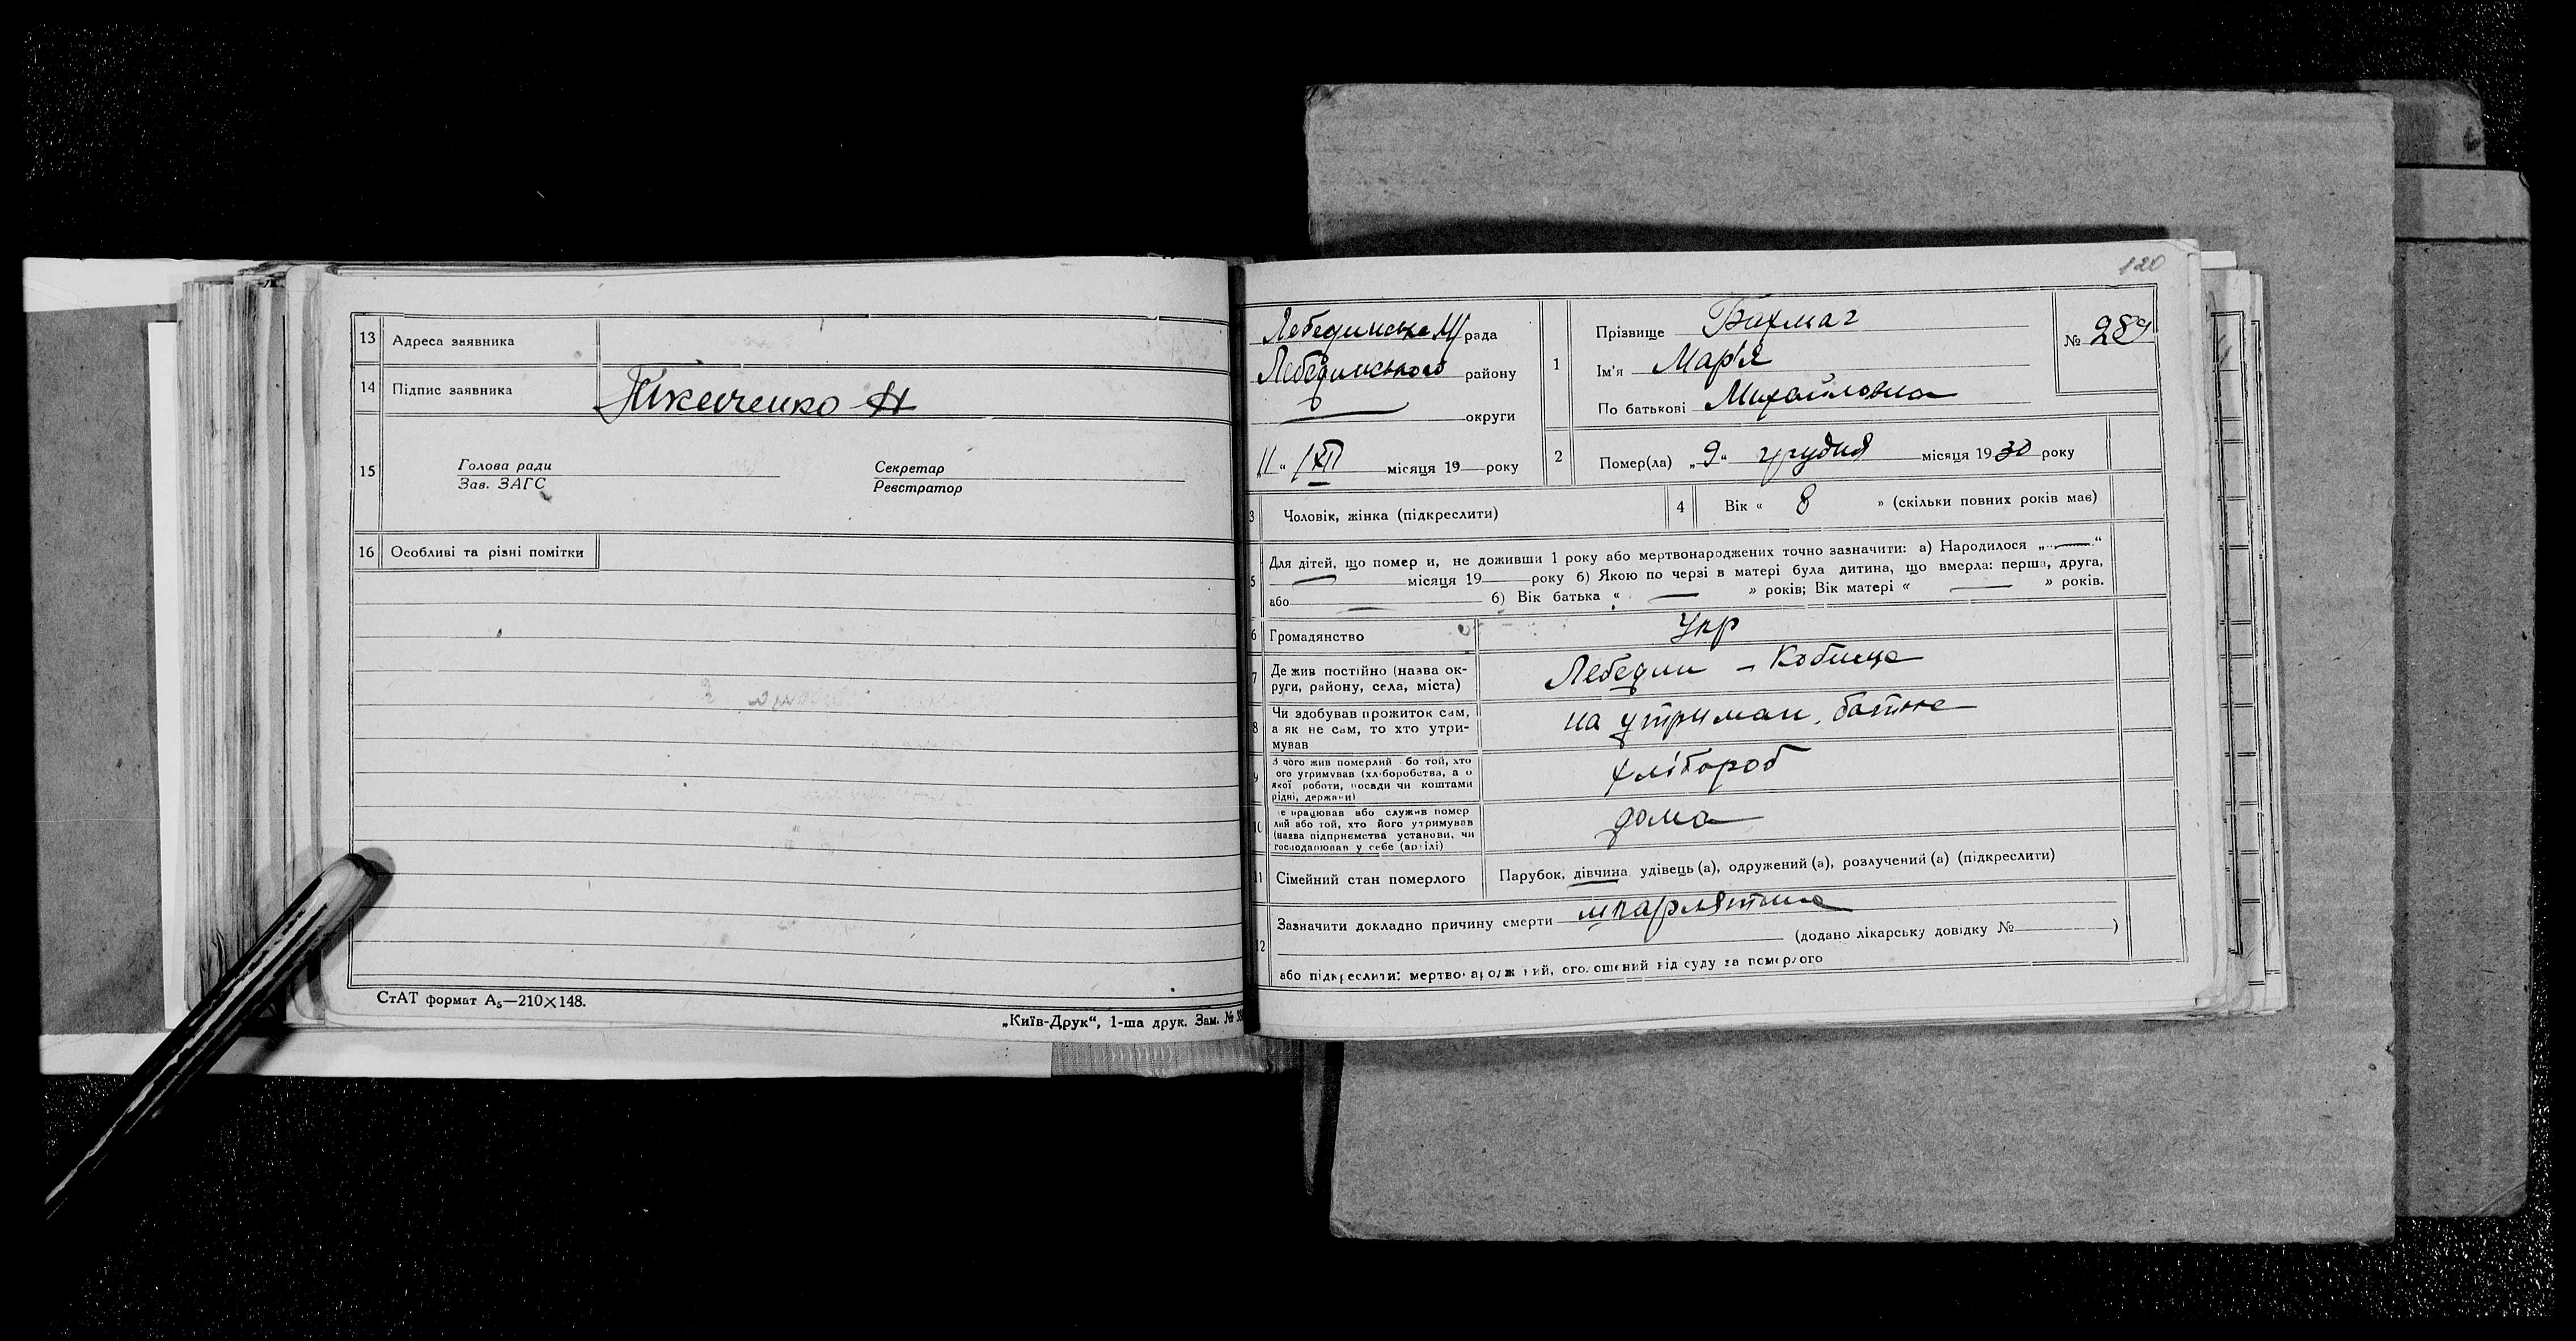 13 Адреса заявника
14 Підпис заявника
15 Голова ради Секретар
Зав. ЗАГС Реєстратор
16 Особливі та різні помітки
СтАТ формат А₅—210×148.
„Київ-Друк“, 1-ша друк. Зам. №
120
Лебединська М/рада
Лебединського району
округи
„11“ /XII місяця 19 року
1 Прізвище Бахмач
Ім'я Мар'я
По батькові Михайловна
№ 289
2 Помер(ла) „9“ грудня місяця 1930 року
3 Чоловік, жінка (підкреслити)
4 Вік « 8 » (скільки повних років має)
5 Для дітей, що помер и, не доживши 1 року або мертвонароджених точно зазначити: а) Народилося „—“
— місяця 19 року б) Якою по черзі в матері була дитина, що вмерла: перша, друга,
або — б) Вік батька « — » років; Вік матері « — » років.
6 Громадянство Укр
7 Де жив постійно (назва ок-
руги, району, села, міста) Лебедин –
8 Чи здобував прожиток сам,
а як не сам, то хто утри-
мував на утриман. батька
9 З чого жив померлий бо той, хто
ого утримував (хліборобства, а о
якої роботи, посади чи коштами
рідні, держави) хлібороб
10 е працював або служив помер
лий або той, хто його утримував
(назва підприємства установи, чи
господарював у себе (артілі) дома
11 Сімейний стан померлого Парубок, дівчина удівець (а), одружений (а), розлучений (а) (підкреслити)
12 Зазначити докладно причину смерти шкарлятина
(додано лікарську довідку № )
або підкреслити: мертвонароджений, оголошений від суду за померлого